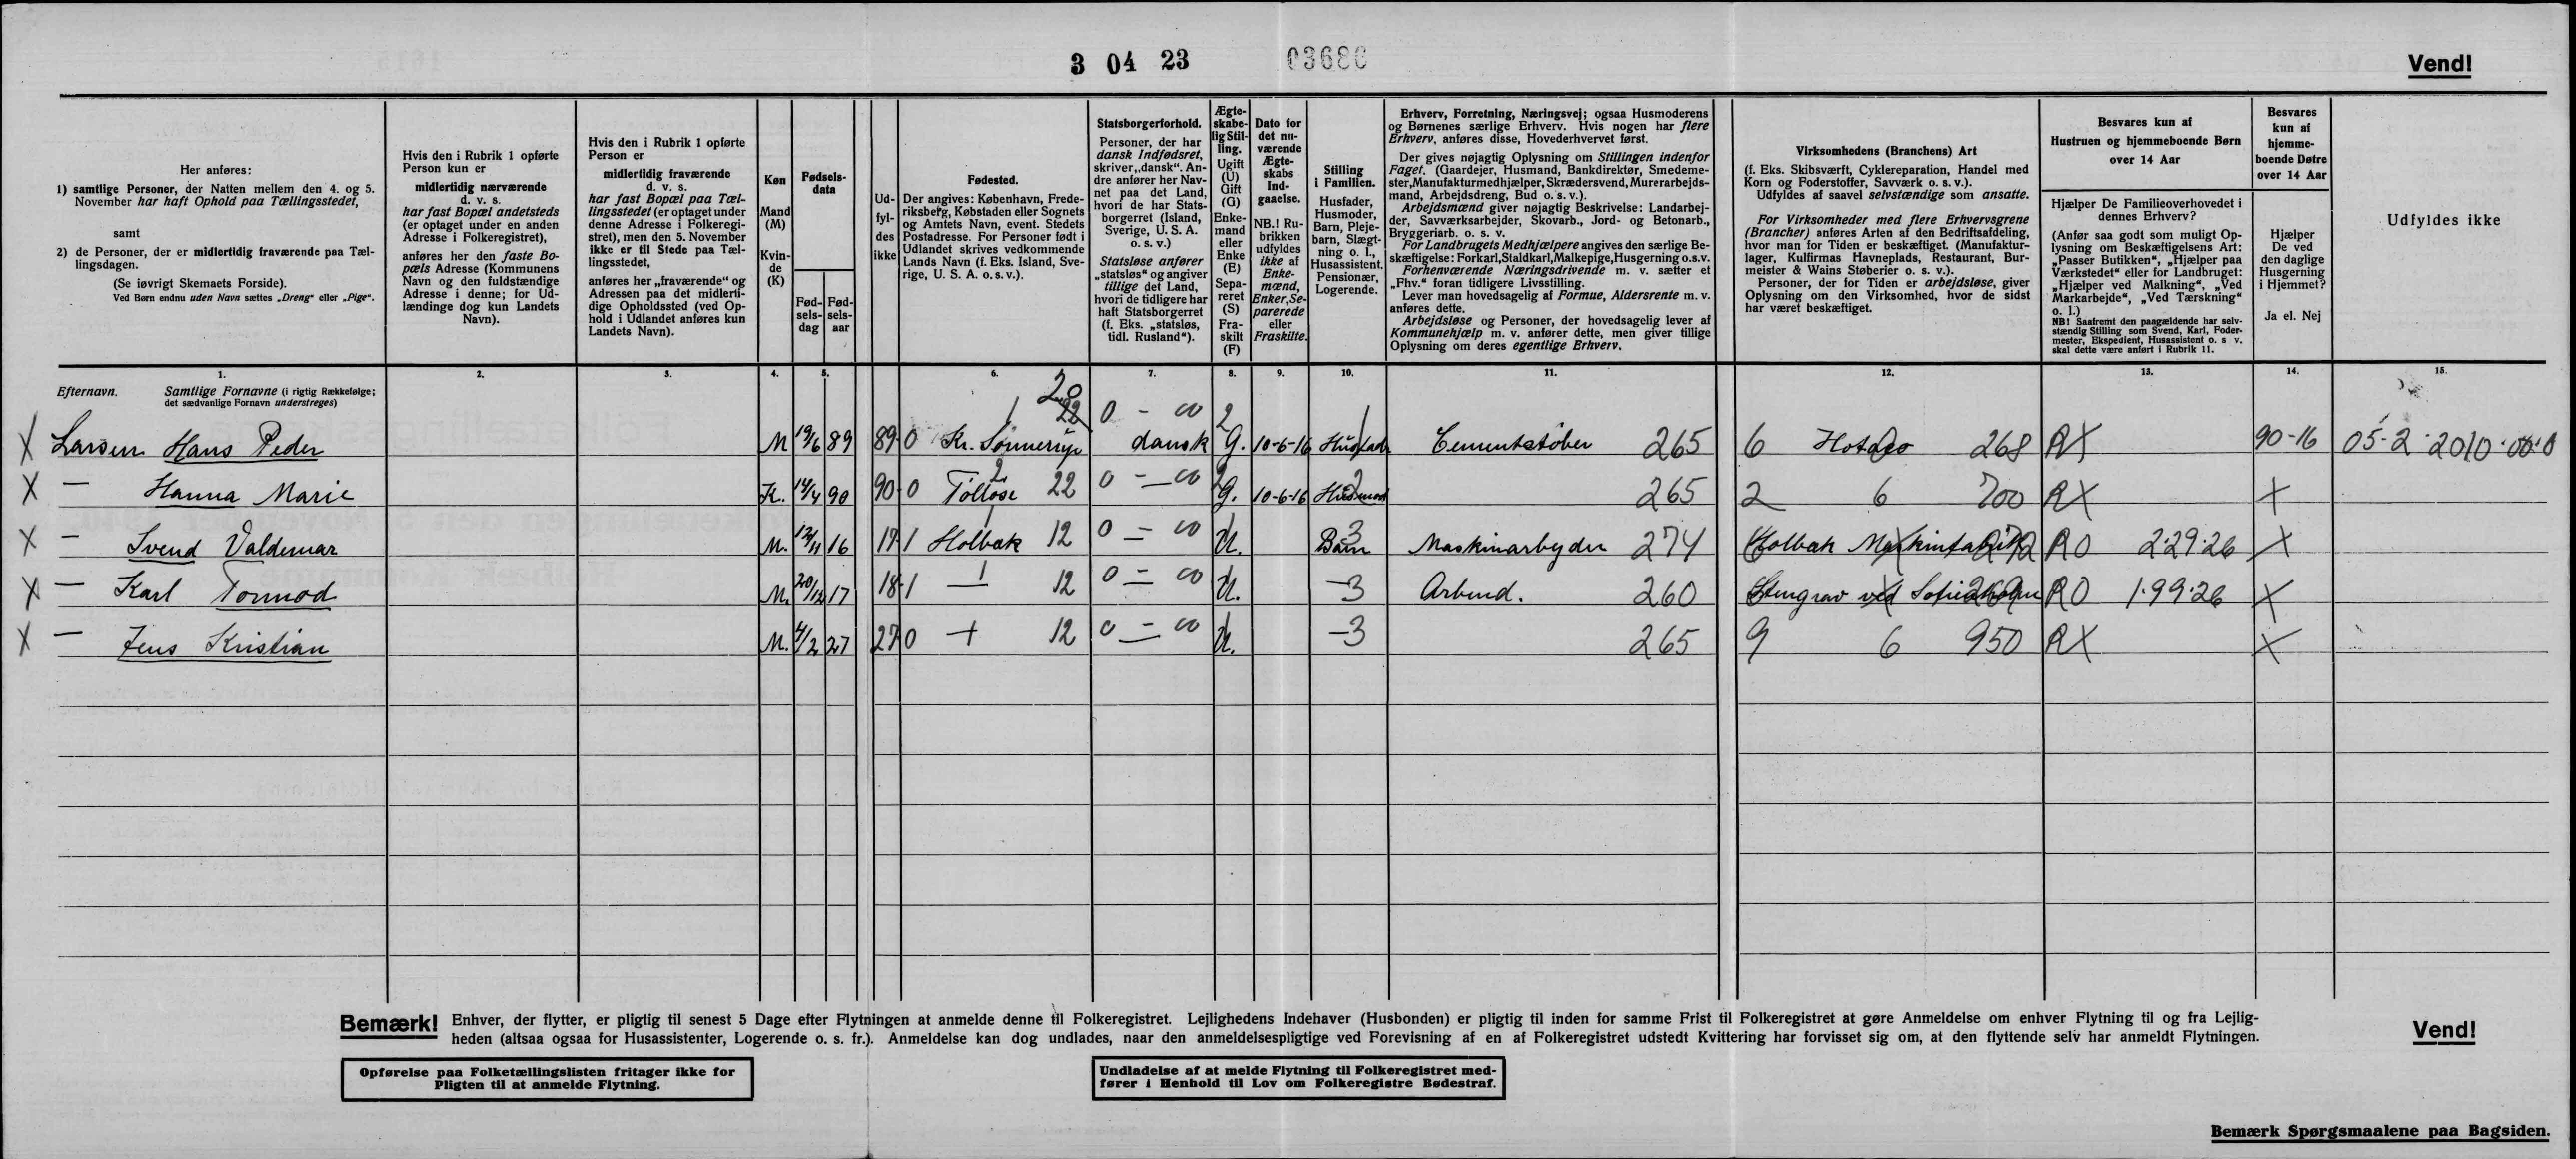 3 04 23 03680
Vend!
Her anføres:
1) samtlige Personer, der Natten mellem den 4. og 5.
November har haft Ophold paa Tællingsstedet,
samt
2) de Personer, der er midlertidig fraværende paa Tæl-
lingsdagen.
(Se iøvrigt Skemaets Forside).
Ved Børn endnu uden Navn sættes „Dreng“ eller „Pige“.
Hvis den i Rubrik 1 opførte
Person kun er
midlertidig nærværende
d. v. s.
har fast Bopæl andetsteds
(er optaget under en anden
Adresse i Folkeregistret),
anføres her den faste Bo-
pæls Adresse (Kommunens
Navn og den fuldstændige
Adresse i denne; for Ud-
lændinge dog kun Landets
Navn).
Hvis den i Rubrik 1 opførte
Person er
midlertidig fraværende
d. v. s.
har fast Bopæl paa Tæl-
lingsstedet (er optaget under
denne Adresse i Folkeregi-
stret), men den 5. November
ikke er til Stede paa Tæl-
lingsstedet,
anføres her „fraværende“ og
Adressen paa det midlerti-
dige Opholdssted (ved Op-
hold i Udlandet anføres kun
Landets Navn).
Køn
Mand
(M)
Kvin-
de
(K)
Fødsels-
data
Fød-
sels-
dag
Fød-
sels-
aar
Ud-
fyl-
des
ikke
Fødested.
Der angives: København, Frede-
riksberg, Købstaden eller Sognets
og Amtets Navn, event. Stedets
Postadresse. For Personer født i
Udlandet skrives vedkommende
Lands Navn (f. Eks. Island, Sve-
rige, U. S. A. o. s. v.).
Statsborgerforhold.
Personer, der har
dansk Indfødsret,
skriver „dansk“. An-
dre anfører her Nav-
net paa det Land,
hvori de har Stats-
borgerret (Island,
Sverige, U. S. A.
o. s. v.)
Statsløse anfører
„statsløs“ og angiver
tillige det Land,
hvori de tidligere har
haft Statsborgerret
(f. Eks. „statsløs,
tidl. Rusland“).
Ægte-
skabe-
lig Stil-
ling.
Ugift
(U)
Gift
(G)
Enke-
mand
eller
Enke
(E)
Sepa-
reret
(S)
Fra-
skilt
(F)
Dato for
det nu-
værende
Ægte-
skabs
Ind-
gaaelse.
NB.! Ru-
brikken
udfyldes
ikke af
Enke-
mænd,
Enker, Se-
parerede
eller
Fraskilte.
Stilling
i Familien.
Husfader,
Husmoder,
Barn, Pleje-
barn, Slægt-
ning o. l.,
Husassistent,
Pensionær,
Logerende.
Erhverv, Forretning, Næringsvej; ogsaa Husmoderens
og Børnenes særlige Erhverv. Hvis nogen har flere
Erhverv, anføres disse, Hovederhvervet først.
Der gives nøjagtig Oplysning om Stillingen indenfor
Faget. (Gaardejer, Husmand, Bankdirektør, Smedeme-
ster, Manufakturmedhjælper, Skrædersvend, Murerarbejds-
mand, Arbejdsdreng, Bud o. s. v.).
Arbejdsmænd giver nøjagtig Beskrivelse: Landarbej-
der, Savværksarbejder, Skovarb., Jord- og Betonarb.,
Bryggeriarb. o. s. v.
For Landbrugets Medhjælpere angives den særlige Be-
skæftigelse: Forkarl, Staldkarl, Malkepige, Husgerning o.s.v.
Forhenværende Næringsdrivende m. v. sætter et
„Fhv.“ foran tidligere Livsstilling.
Lever man hovedsagelig af Formue, Aldersrente m. v.
anføres dette.
Arbejdsløse og Personer, der hovedsagelig lever af
Kommunehjælp m. v. anfører dette, men giver tillige
Oplysning om deres egentlige Erhverv.
Virksomhedens (Branchens) Art
(f. Eks. Skibsværft, Cyklereparation, Handel med
Korn og Foderstoffer, Savværk o. s. v.).
Udfyldes af saavel selvstændige som ansatte.
For Virksomheder med flere Erhvervsgrene
(Brancher) anføres Arten af den Bedriftsafdeling,
hvor man for Tiden er beskæftiget. (Manufaktur-
lager, Kulfirmas Havneplads, Restaurant, Bur-
meister & Wains Støberier o. s. v.).
Personer, der for Tiden er arbejdsløse, giver
Oplysning om den Virksomhed, hvor de sidst
har været beskæftiget.
Besvares kun af
Hustruen og hjemmeboende Børn
over 14 Aar
Hjælper De Familieoverhovedet i
dennes Erhverv?
(Anfør saa godt som muligt Op-
lysning om Beskæftigelsens Art:
„Passer Butikken“, „Hjælper paa
Værkstedet“ eller for Landbruget:
„Hjælper ved Malkning“, „Ved
Markarbejde“, „Ved Tærskning“
o. l.)
NB! Saafremt den paagældende har selv-
stændig Stilling som Svend, Karl, Foder-
mester, Ekspedient, Husassistent o. s v.
skal dette være anført i Rubrik 11.
Besvares
kun af
hjemme-
boende Døtre
over 14 Aar
Hjælper
De ved
den daglige
Husgerning
i Hjemmet?
Ja el. Nej
Udfyldes ikke
1. 2. 3. 4. 5. 6. 7. 8. 9. 10. 11. 12. 13. 14. 15.
Efternavn. Samtlige Fornavne (i rigtig Rækkefølge;
det sædvanlige Fornavn understreges)
20
X Larsen Hans Peder M 19/6 89 89 0 Kr. 22 0 - 00 dansk 2 G. 10-6-16 Cementstøber 265 6 268 RX 90-16 05-2-2010-00-0
X — Hanna Marie K. 14/4 90 90 0 Tølløse 2 22 0 - 00 G. 10-6-16 Husmod 2 265 2 6 700 RX X
X — Svend Valdemar M. 12/11 16 17 1 Holbæk 1 12 0 - 00 U. Barn 3 Maskinarbejder 274 Holbæk Maskinfabrik 272 RO 2·29·26 X
X — Karl Tormod M. 20/12 17 18 1 — 1 12 0 - 00 U. - 3 Arbmd. 260 Stengrav ved RO 1·99·26 X
X — Jens Kristian M. 4/2 27 27 0 12 0 - 00 U. - 3 265 9 6 950 RX X
Bemærk! Enhver, der flytter, er pligtig til senest 5 Dage efter Flytningen at anmelde denne til Folkeregistret. Lejlighedens Indehaver (Husbonden) er pligtig til inden for samme Frist til Folkeregistret at gøre Anmeldelse om enhver Flytning til og fra Lejlig-
heden (altsaa ogsaa for Husassistenter, Logerende o. s. fr.). Anmeldelse kan dog undlades, naar den anmeldelsespligtige ved Forevisning af en af Folkeregistret udstedt Kvittering har forvisset sig om, at den flyttende selv har anmeldt Flytningen.
Vend!
Opførelse paa Folketællingslisten fritager ikke for
Pligten til at anmelde Flytning.
Undladelse af at melde Flytning til Folkeregistret med-
fører i Henhold til Lov om Folkeregistre Bødestraf.
Bemærk Spørgsmaalene paa Bagsiden.